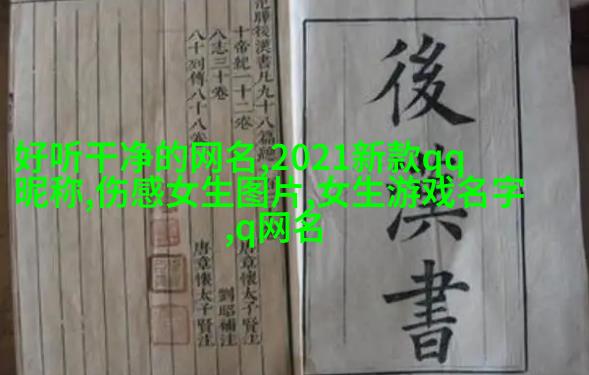 好听干净的网名,2021新款qq
昵称,伤感女生图片,女生游戏名字
,q网名
後漢書
後漢書凡九十八篇
十帝紀一十二卷 唐章懷太子賢注
八志三十卷 劉昭補注
八十列傳八十八卷 唐章懷太子賢注